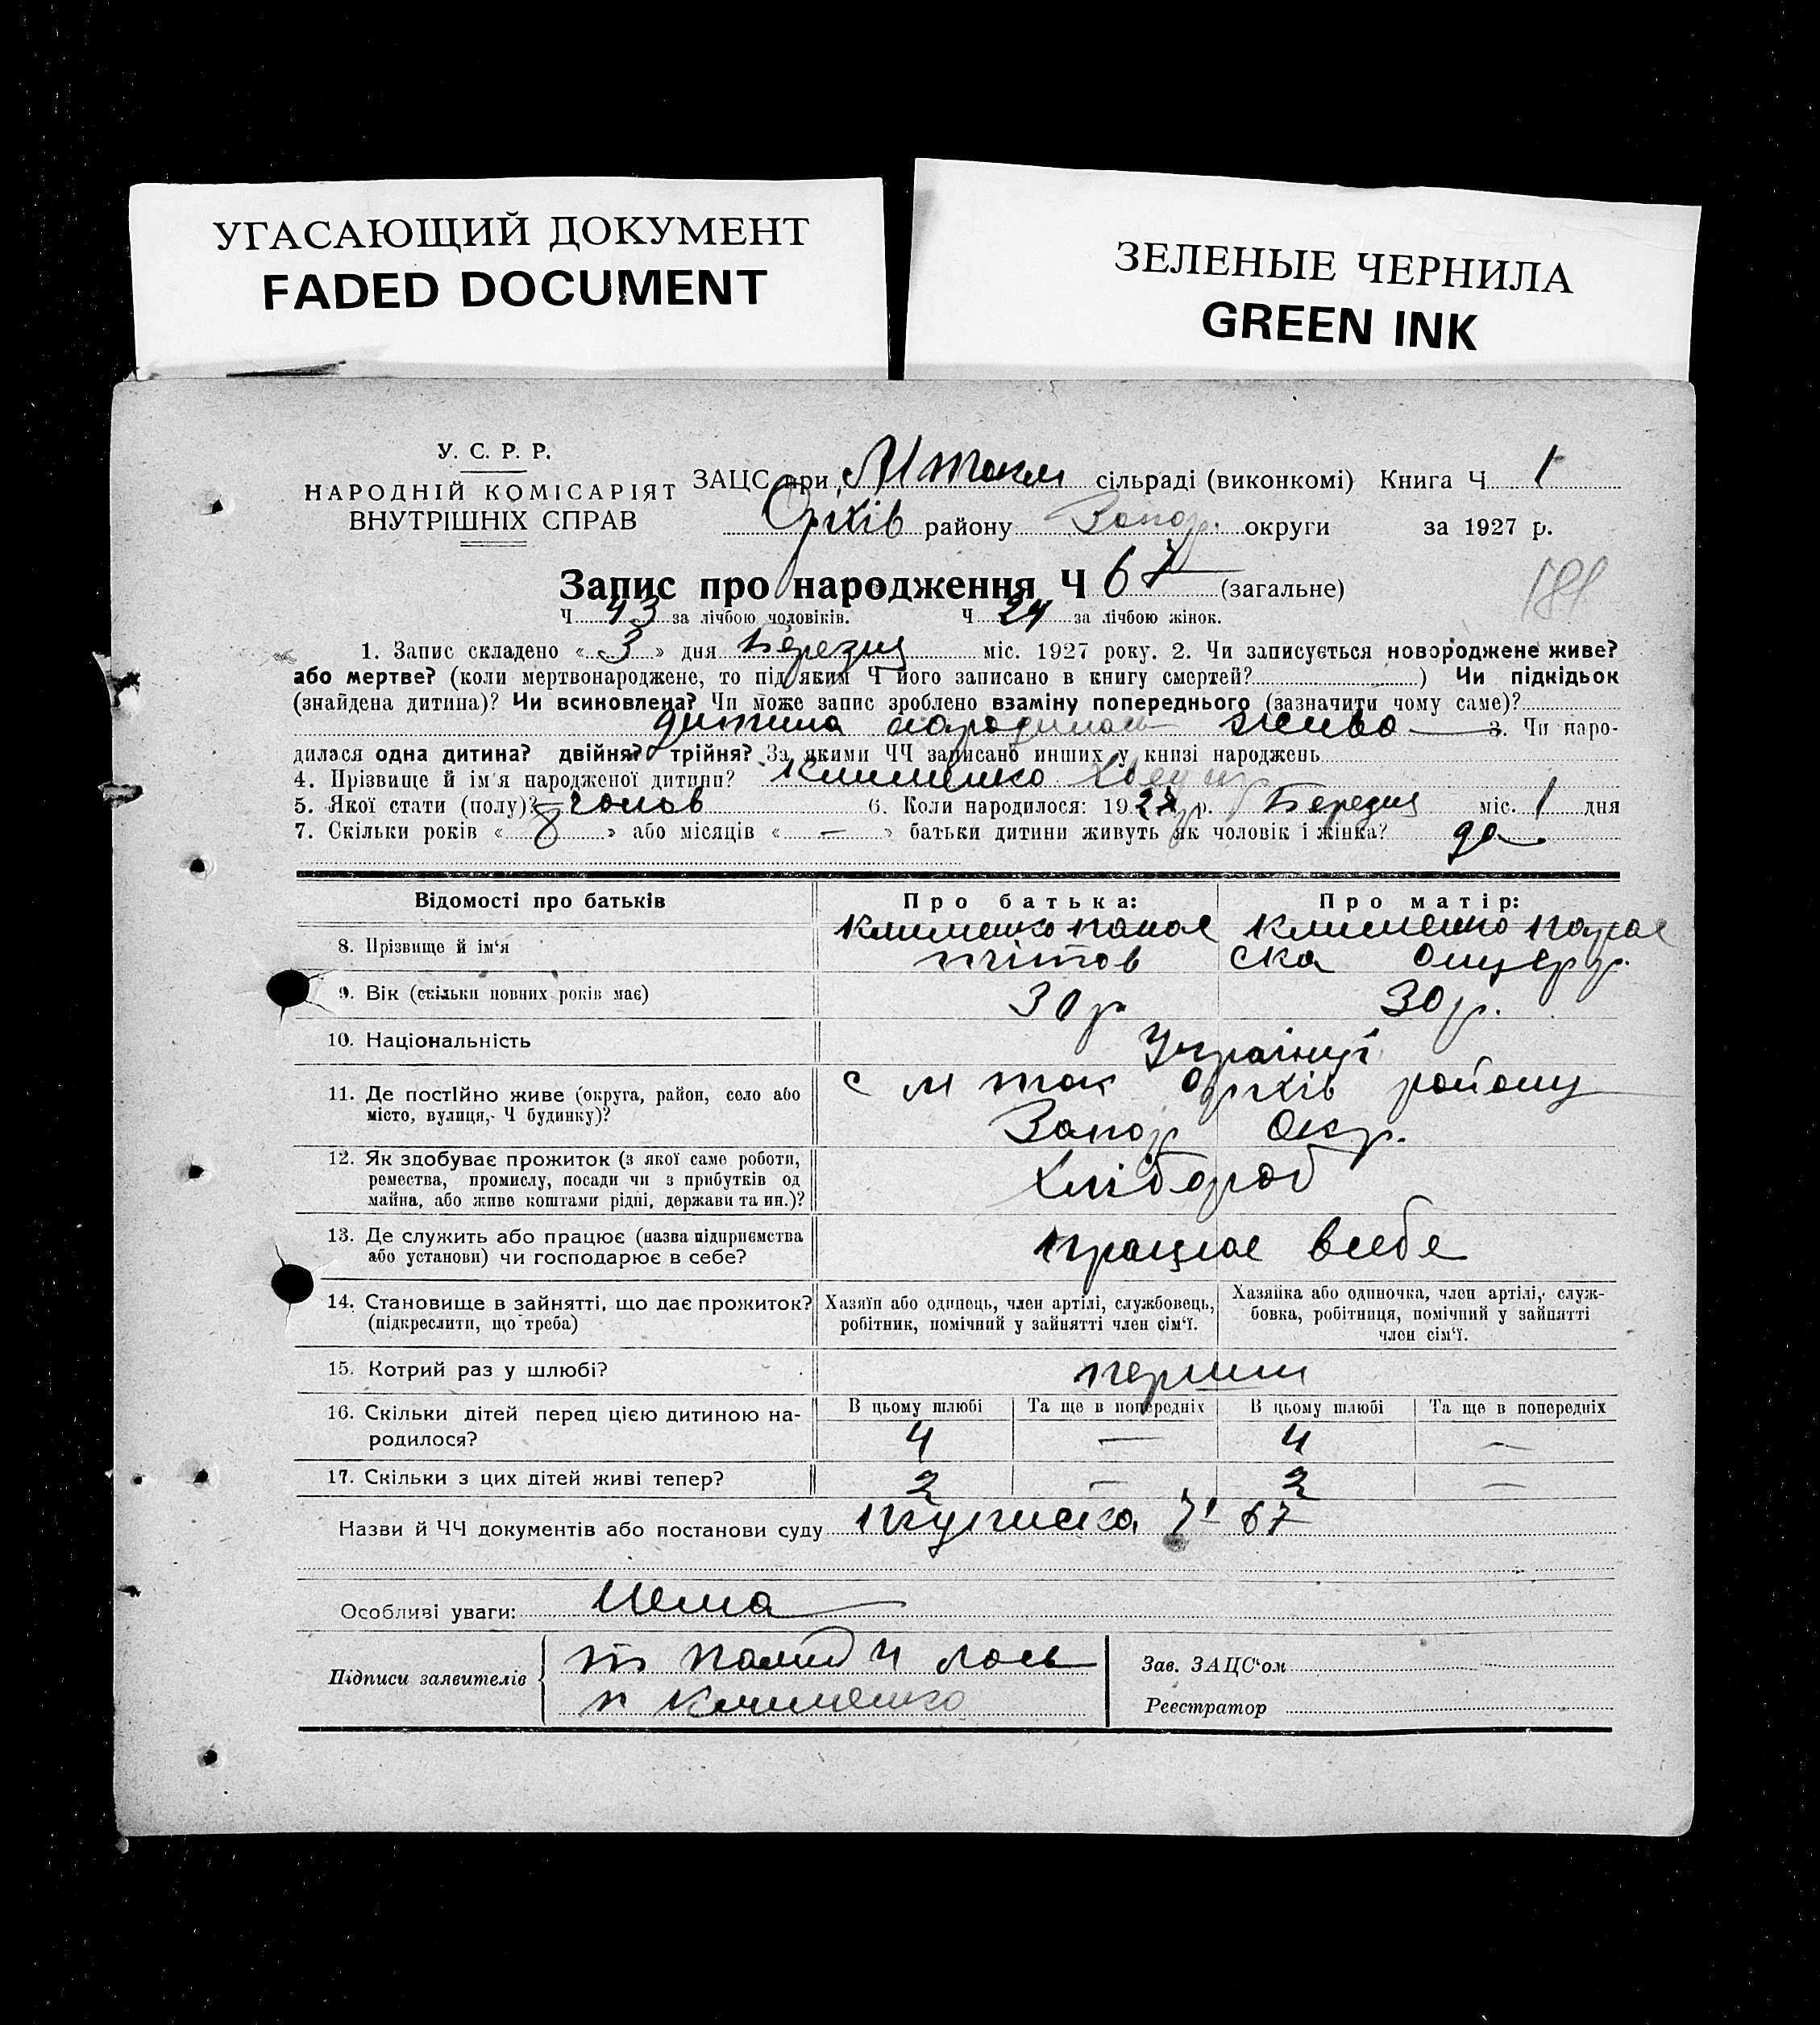 УГАСАЮЩИЙ ДОКУМЕНТ
FADED DOCUMENT
ЗЕЛЕНЫЕ ЧЕРНИЛА
GREEN INK
У. С. Р. Р.
НАРОДНІЙ КОМІСАРІЯТ
ВНУТРІШНІХ СПРАВ
ЗАЦС при М Токм сільраді (виконкомі) Книга Ч 1
Оріхів району Запор. округи за 1927 р.
Запис про народження Ч 67 (загальне)
181
Ч 43 за лічбою чоловіків. Ч 24 за лічбою жінок.
1. Запис складено « 3 » дня Березня міс. 1927 року. 2. Чи записується новороджене живе?
або мертве? (коли мертвонароджене, то під яким Ч його записано в книгу смертей? ) Чи підкідьок
(знайдена дитина)? Чи всиновлена? Чи може запис зроблено взаміну попереднього (зазначити чому саме)?
дитина народилась живо 3. Чи наро-
дилася одна дитина? двійня? трійня? За якими ЧЧ записано инших у книзі народжень
4. Прізвище й ім'я народженої дитини? Клименко Хведир
5. Якої стати (полу)? чолов 6. Коли народилося: 1927 р. Березня міс. 1 дня
7. Скільки років « 8 » або місяців « — » батьки дитини живуть як чоловік і жінка? да
Відомості про батьків Про батька: Про матір:
8. Прізвище й ім'я Клименко Панас Клименко Парас
Тітов ска
9. Вік (скільки повних років має) 30 р 30 р.
10. Національність Українці
11. Де постійно живе (округа, район, село або
місто, вулиця, Ч будинку)?
с М Ток Оріхів району
Запор Окр.
12. Як здобуває прожиток (з якої саме роботи,
ремества, промислу, посади чи з прибутків од
майна, або живе коштами рідні, держави та ин.)?
Хлібороб
13. Де служить або працює (назва підприємства
або установи) чи господарює в себе?
працює всебе
14. Становище в зайнятті, що дає прожиток?
(підкреслити, що треба)
Хазяїн або одинець, член артілі, службовець,
робітник, помічний у зайнятті член сім'ї.
Хазяйка або одиночка, член артілі, служ-
бовка, робітниця, помічний у зайнятті
член сім'ї.
15. Котрий раз у шлюбі? перший
16. Скільки дітей перед цією дитиною на-
родилося?
В цьому шлюбі Та ще в попередніх В цьому шлюбі Та ще в попередніх
4 — 4 —
17. Скільки з цих дітей живі тепер? 2 — 2 —
Назви й ЧЧ документів або постанови суду 67
Особливі уваги: Нема
Підписи заявителів
п Клименко
Зав. ЗАЦС'ом
Реєстратор